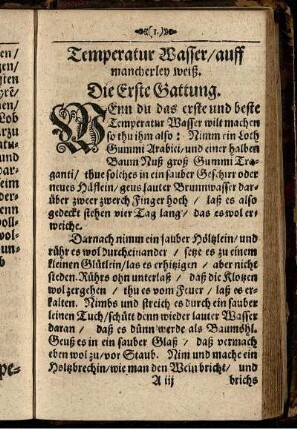 (1.)
Temperatur Wasser/auff
mancherley weiß.
Die Erste Gattung.
WEnn du das erste und beste
Temperatur Wasser wilt machen
so thu ihm also: Nimm ein Loth
Gummi Arabici/ und einer halben
Baum Nuß groß Gummi Tra-
ganti/ thue solches in ein sauber Geschirr oder
neues Häflein/ geus lauter Brunnwasser dar-
über zweer zwerch Finger hoch/ laß es also
gedeckt stehen vier Tag lang/ das es wol er-
weiche.
Darnach nimm ein sauber Höltzlein/ und
rühr es wol durcheinander/ setze es zu einem
kleinen Glütlein/ las es erhitzigen/ aber nicht
sieden. Rührs ohn unterlaß/ daß die Klotzen
wol zergehen/ thu es vom Feuer/ laß es er-
kalten. Nimbs und streich es durch ein sauber
leinen Tuch/ schüte denn wieder lauter Wasser
daran/ daß es dünn werde als Baumöhl.
Geuß es in ein sauber Glaß/ daß vermach
eben wol zu/ vor Staub. Nim und mache ein
Holtzbrechin/ wie man den Wein bricht/ und
A iij brichs
en/
gen/
ten
Lob
rzu
tu-
und
dem
woll
wol-
un-
b
pe-